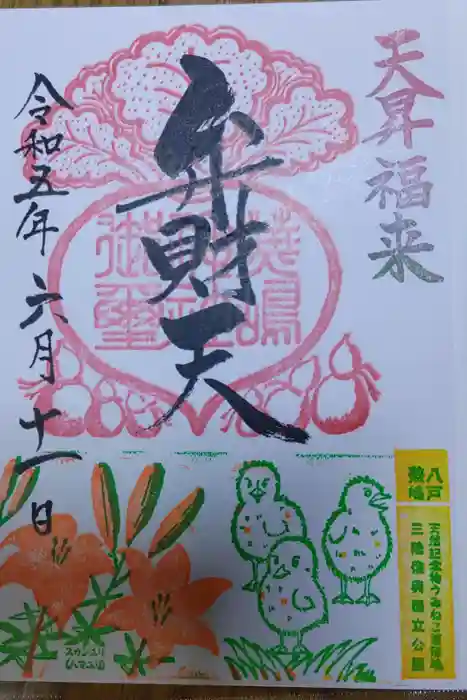 天昇福来
弁財天
令和五年六月十一日
八戸
蕪嶋
天然記念物うみねこ蕃殖地
三陸復興国立公園
スカシユリ
(ハマユリ)